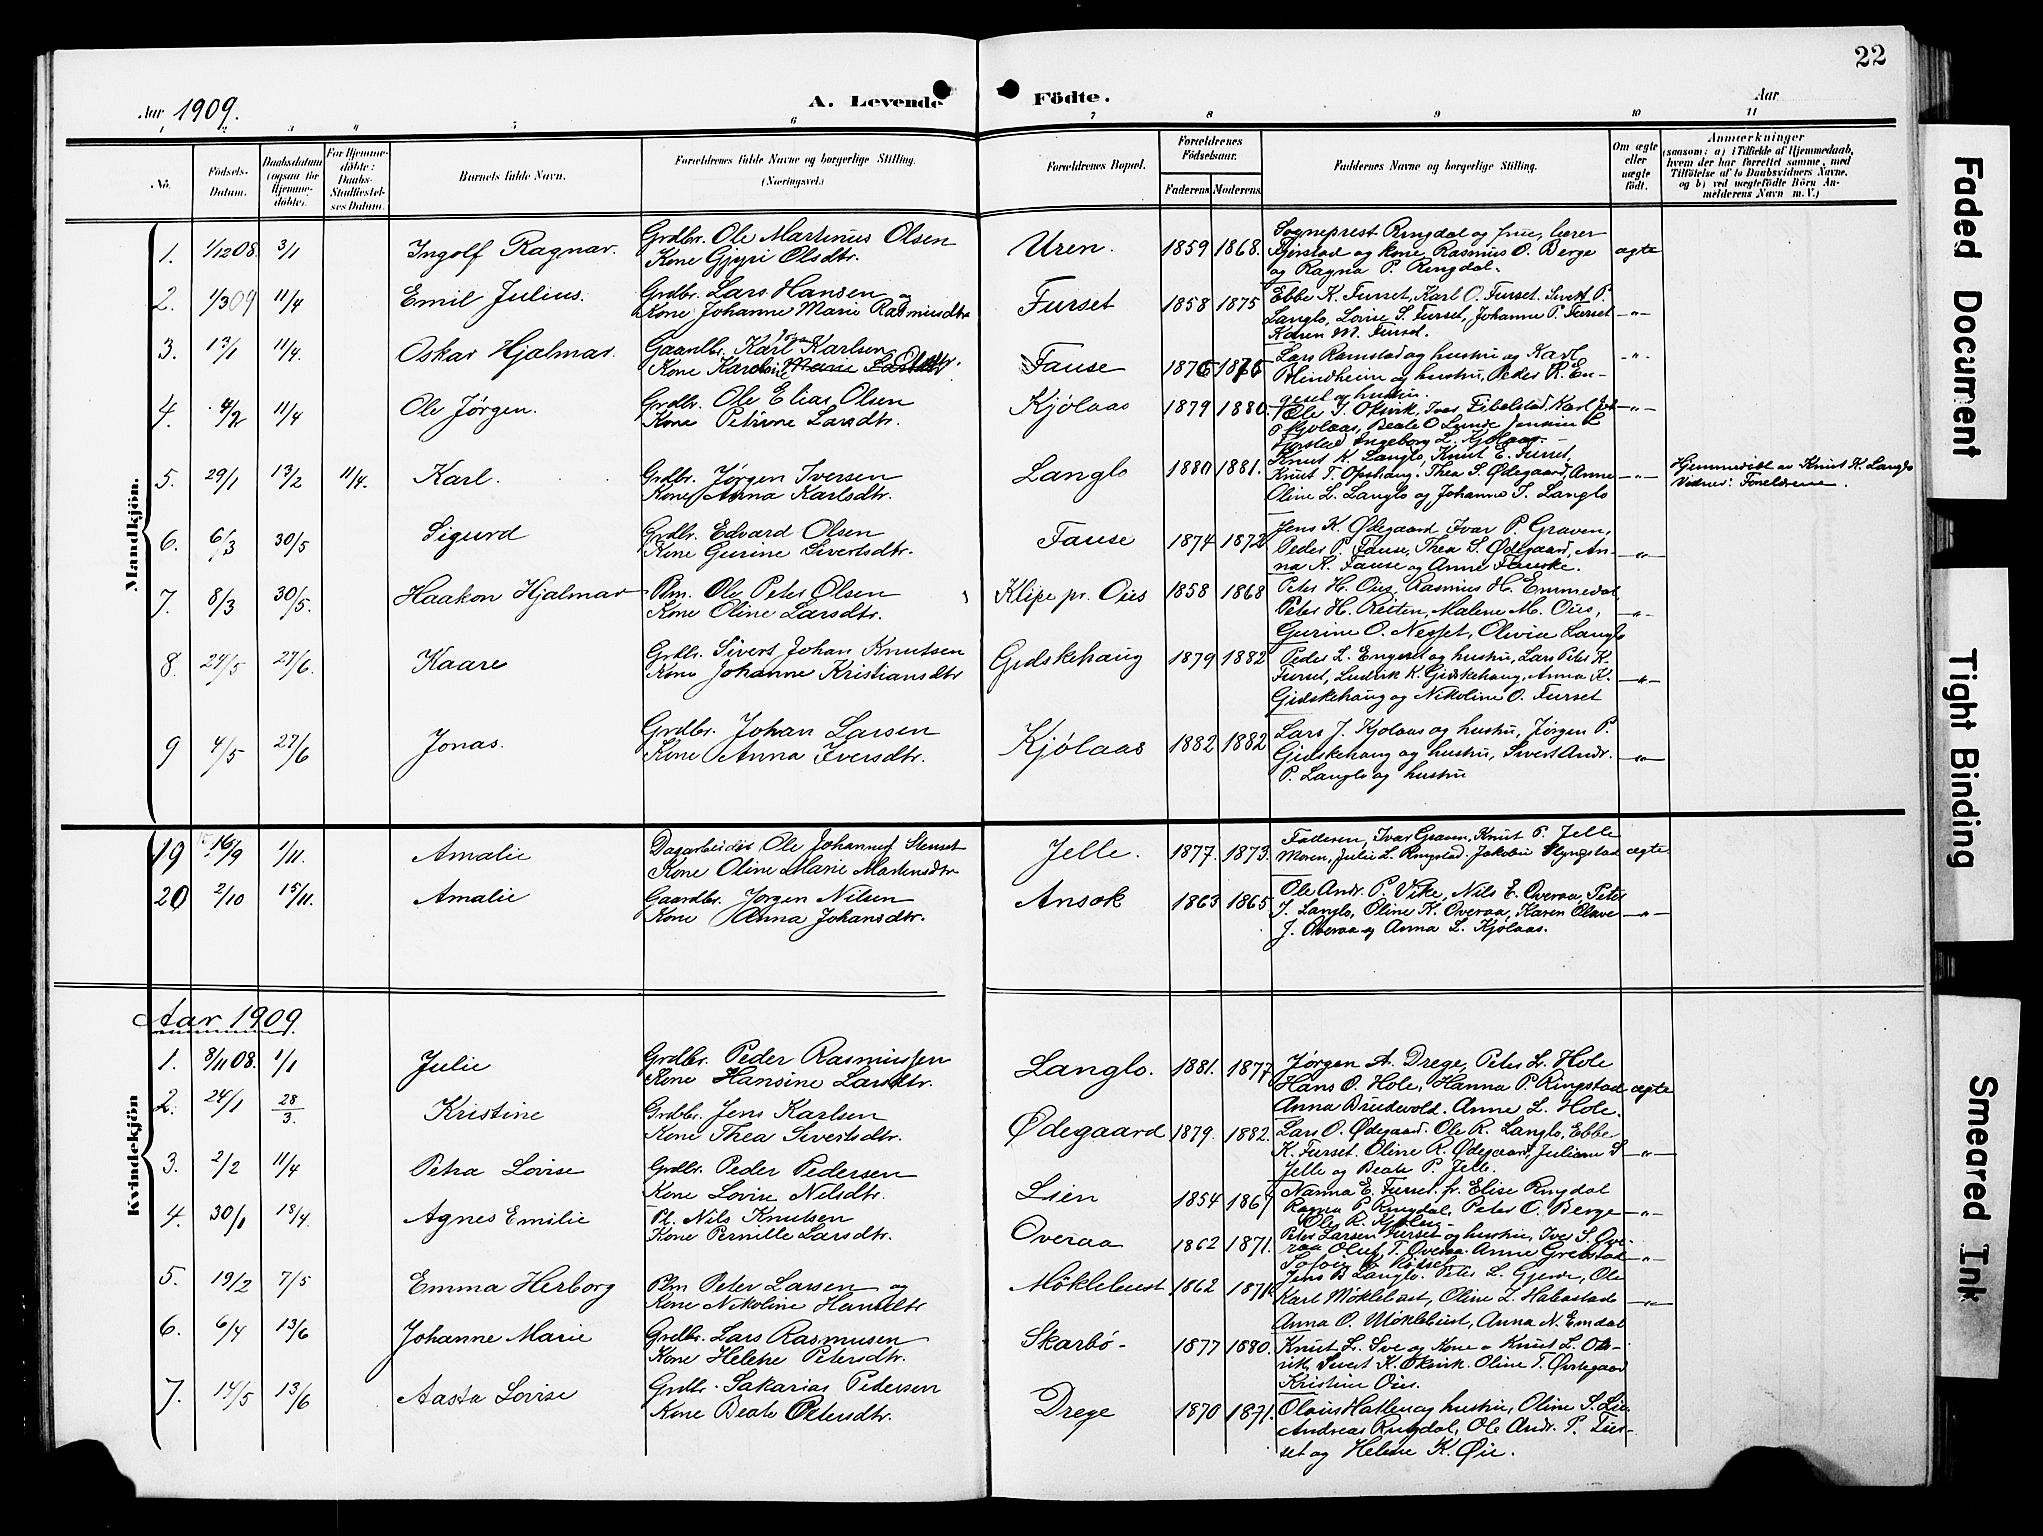 22
Aar 1909. A. Levende Födte. Aar
1 2 3 4 5 6 7 8 9 10 11
No. Födsels-Datum. Daabsdatum (ogsaa for Hjemme-döbte). For Hjemme-döbte: Daabs-Stadfæstel-ses Datum. Barnets fulde Navn. Forældrenes fulde Navne og borgerlige Stilling. (Næringsvei.) Forældrenes Bopæl. Forældrenes Födselsaar. Faderens Moderens Faddernes Navne og borgerlige Stilling. Om ægte eller uægte födt. Anmærkninger (saasom: a) i Tilfælde af Hjemmedaab, hvem der har forrettet samme, med Tilföielse af to Daabsvidners Navne, og b) ved uægtefödte Börn An-melderens Navn m. V.)
Mandkjön.
1. 1/12 08. 3/1 Ingolf Ragnar. Grdbr. Ole Martinus Olsen Uren. 1859 1868. Sogneprest Ringdal og frue, lærer
Kone Gjyri Olsdtr. og kone, Rasmus O. Berge ægte
og Ragna P. Ringdal.
2. 1/3 09 11/4 Emil Julius. Grdbr. Lars Hansen og Furset 1858 1875 Ebbe K. Furset, Karl O. Furset. Sivert P.
Kone Johanne Marie Rasmusdtr Langlo, Lovise S. Furset, Johanne P. Furset -"-
Karen M. Furset.
3. 13/1 11/4. Oskar Hjalmar. Gaardbr. Karl Karlsen Fause 1876 Lars Ramstad og hustru og Karl -"-
Kone Blindheim og hustru, Peder R. En-
geset og hustru.
4. 4/2 11/4 Ole Jørgen. Grdbr. Ole Elias Olsen Kjølaas 1879 1880. Ole J. Okvik, Iver Fibelstad, Karl -"-
Kone Petrine Larsdtr. O Kjølaas, Beate O Lunde
Ingeborg L. Kjølaas.
5. 29/1 13/2 11/4. Karl. Grdbr. Jørgen Iversen Langlo 1880 1881. Knut K. Langlo, Knut E. Furset, Hjemmedøbt av Knut K. Langlo
Kone Anna Karlsdtr. Knut T. Opshaug. Thea S. Ødegaard, Anne -"- Vidner: Forældrene.
Oline L. Langlo og Johanne I. Langlo
6. 6/3 30/5 Sigurd Grdbr. Edvard Olsen Fause 1874 1872 Jens K. Ødegaard, Ivar P. Graven,
Kone Gurine Sivertsdtr. Peder P. Fause, Thea S. Ødegaard, An- -"-
na K. Fause og Anne Fauske.
7. 8/3 30/5. Haakon Hjalmar Plm. Ole Peter Olsen Klipe pr. Øies 1858 1868 Peter H. Øies, Rasmus H. Emmedal,
Kone Oline Larsdtr. Peter H. Reiten, Malene M. Øies, -"-
Gurine O. Nesset, Olivia Langlo
8. 24/5 27/6. Kaare Grdbr. Sivert Johan Knutsen Gidskehaug 1879 1882 Peder L. Engeset og hustru, Lars Peter K.
Kone Johanne Kristiansdtr Furset, Ludvik K. Gidskehaug, Anna K. -"-
Gidskehaug og Nikoline O. Furset
9 4/5 27/6 Jonas. Grdbr. Johan Larsen Kjølaas 1882 1882 Lars J. Kjølaas og hustru, Jørgen P.
Kone Anna Iversdtr. Gidskehaug og hustru, Sivert Andr. -"-
P. Langlo og hustru
19 16/9 1/11. Amalie Dagarbeider Ole Johannes Stenset Jelle. 1877. 1873. Faderen, Ivar Graven, Knut P. Jelle
Kone Oline Marie Martensdtr Moren, Julie L. Ringstad. Jakobie Slyngstad ægte.
20 2/10 15/11. Amalie Gaardbr. Jørgen Nilsen Ansok 1863 1865 Ole Andr. P. Vike, Nils E. Overaa, Peter
Kone Anna Johansdtr. J. Langlo, Oline K. Overaa, Karen Olave -"-
J. Overaa og Anna L. Kjølaas.
Aar 1909
Kvindekjön
1. 8/11 08. 1/1 Julie Grdbr. Peder Rasmussen Langlo. 1881. 1877 Jørgen A. Drege, Peter L. Hole
Kone Hansine Larsdtr. Hans O. Hole, Hanna P. Ringstad ægte
Anna Brudevold. Anne L. Hole.
2. 24/1 28/3. Kristine Grdbr. Jens Karlsen Ødegaard 1879. 1882. Lars O. Ødegaard. Ole R. Langlo, Ebbe
Kone Thea Sivertsdtr. K. Furset. Oline R. Ødegaard, Juliane S -"-
Jelle og Beate P. Jelle.
3. 2/2 11/4 Petra Lovise Grdbr. Peder Pedersen Lien 1854 1867 Nanna E. Furset. fr. Elise Ringdal
Kone Lovise Nilsdtr. Ragna P. Ringdal, Peter O. Berge -"-
4. 30/1 18/4. Agnes Emilie Pl. Nils Knutsen Overaa 1862 1871. Peter Larsen Furset og hustru, Iver S. Ove-
Kone Pernille Larsdtr. raa Oluf T. Overaa. Anne Grebstad -"-
5. 19/2 7/5 Emma Herborg Plm Peter Larsen og Møklebust 1862 1871 Jens B Langlo. Peter L. Gjerde, Ole
Kone Nikoline Hansdtr Karl Møklebust, Oline L. Habostad -"-
Anna O. Møklebust, Anna N. Emdal
6. 6/4 13/6 Johanne Marie Grdbr. Lars Rasmusen Skarbø - 1877 1880. Knut L. Sve og Kone Knut L. Ok-
Kone Helene Petersdtr. vik, Sivert K. Okvik. Oline T. Ødegaard
Kristine Øies.
7. 14/5 13/6 Aasta Lovise Grdbr. Sakarias Pedersen Drege 1870 1871. Olaus Hatlen og hustru, Oline S. Lie
Kone Beate Petersdtr. Andreas Ringdal, Ole Andr. P. Fur-
set og Helene K. Øie.
Faded Document
Tight Binding
Smeared Ink